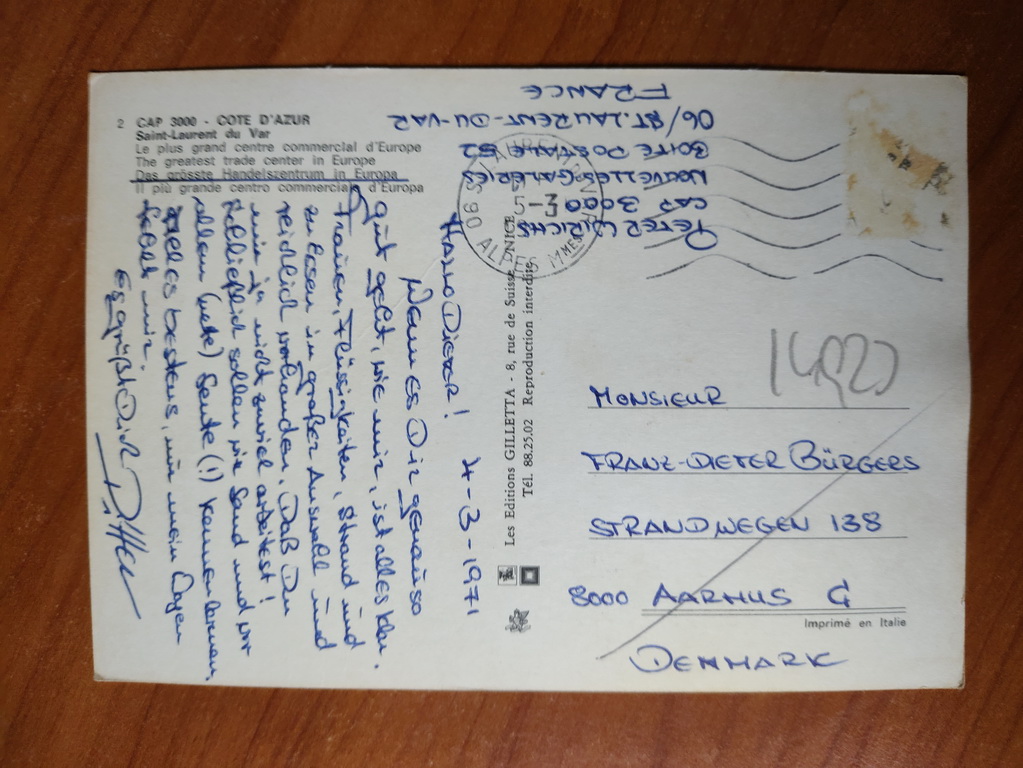 2 CAP 3000 - COTE D'AZUR
Saint-Laurent du Var
Le plus grand centre commercial d'Europe
The greatest trade center in Europe
Das grösste Handelszentrum in Europa
Il più grande centro commerciale d'Europa
4-3-1971
Hallo Dieter!
Wenn es Dir genauso
gut geht, wie mir, ist alles klar.
Frauen, Flüssigkeiten, Strand und
in großer Auswahl und
reichlich vorhanden. Daß Du
mir ja nicht zuviel arbeitest!
Schließlich sollen wir Land und vor
allem (nette) Leute (!) kennenlernen.
alles bestens, nur mein Wagen
fehlt mir.
Es grüßt Dich
PETER ULRICHS
CAP 3000
NOUVELLES GALERIES
BOITE POSTALE 52
06/ST. LAURENT-DU-VAR
FRANCE
5-3
90 ALPES MMES
Les Editions GILLETTA - 8, rue de Suisse, NICE
Tél. 88.25.02 Reproduction interdite
MONSIEUR
FRANZ-DIETER BÜRGERS
STRANDWEGEN 138
8000 AARHUS C
DENMARK
Imprimé en Italie